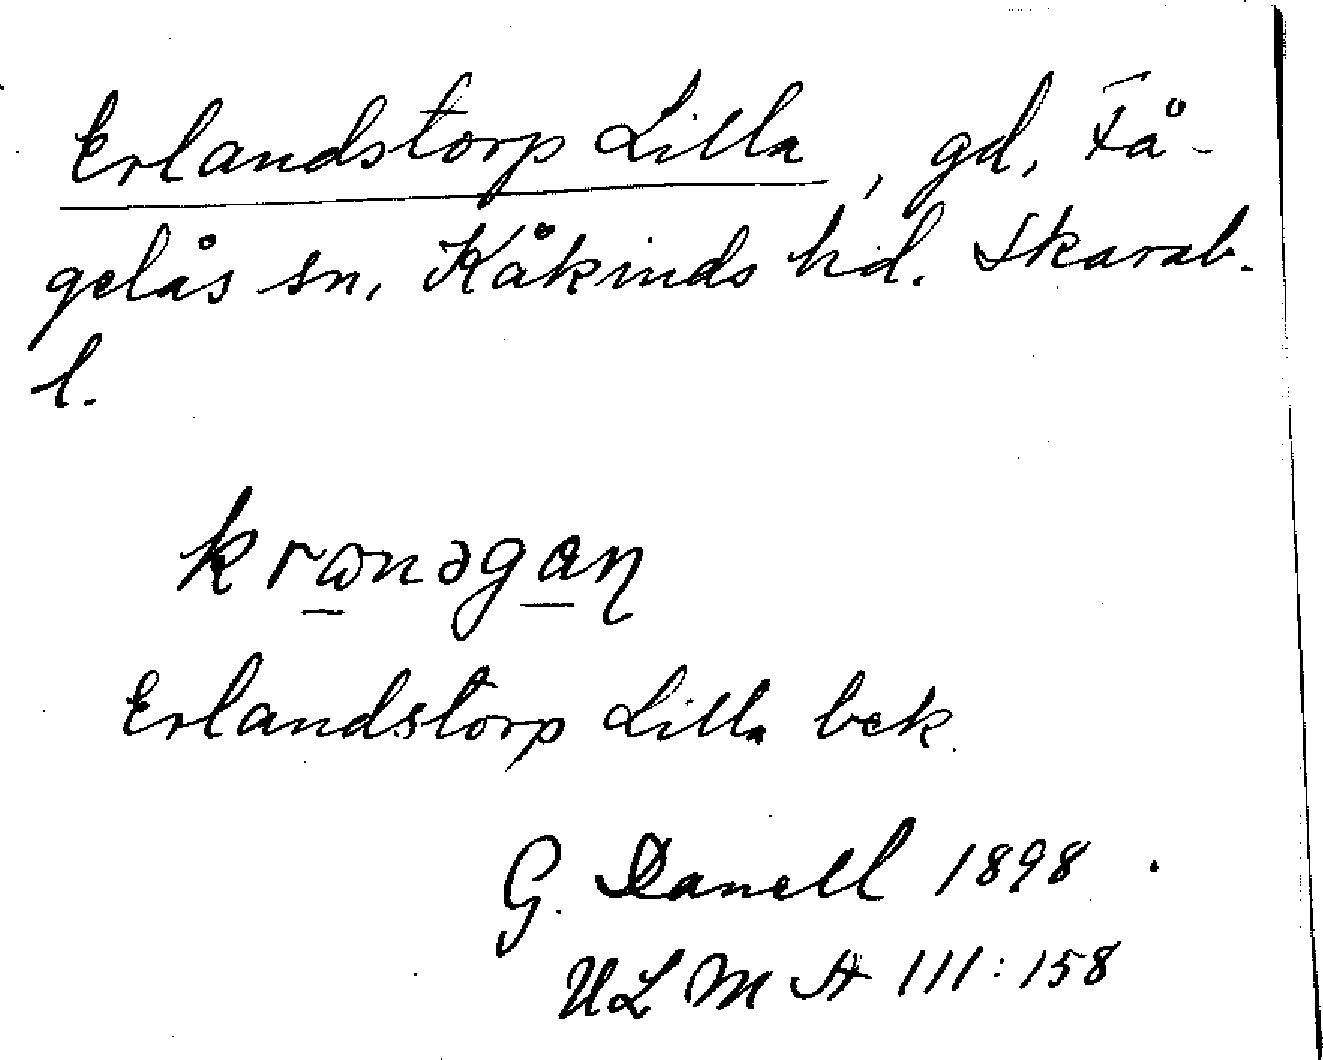 Erlandstorp Lilla, gd, Få-
gelås sn, Kåkinds hd. Skarab.
l.
krɷnəgaŋ
Erlandstorp Lilla bek.
G. Danell 1898.
ULMA 111:158